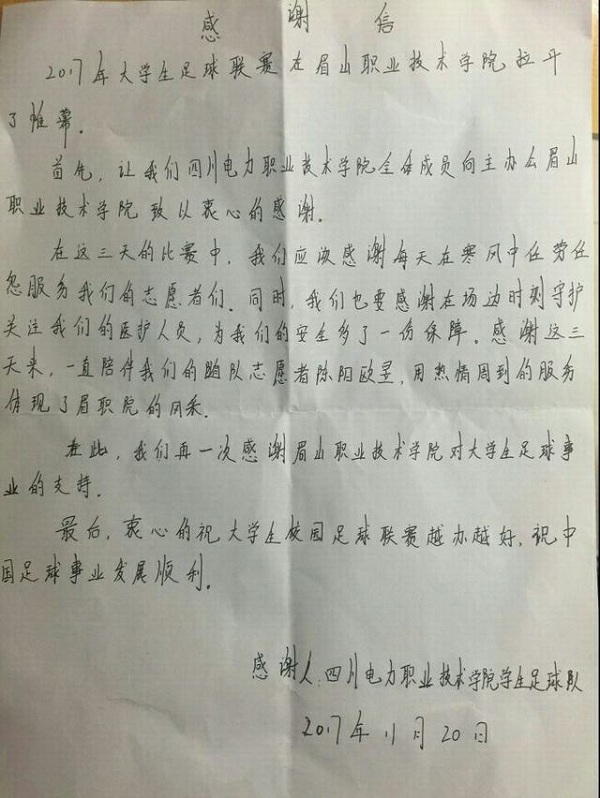 感谢信
2017年大学生足球联赛在眉山职业技术学院拉开
了帷幕。
首先，让我们四川电力职业技术学院全体成员向主办会眉山
职业技术学院致以衷心的感谢。
在这三天的比赛中，我们应该感谢每天在寒风中任劳任
怨服务我们的志愿者们。同时，我们也要感谢在场边时刻守护
关注我们的医护人员，为我们的安全多了一份保障。感谢这三
天来，一直陪伴我们的随队志愿者陈阳欧昱，用热情周到的服务
体现了眉职院的风采。
在此，我们再一次感谢眉山职业技术学院对大学生足球事
业的支持。
最后，衷心的祝大学生校园足球联赛越办越好，祝中
国足球事业发展顺利。
感谢人：四川电力职业技术学院学生足球队
2017年11月20日